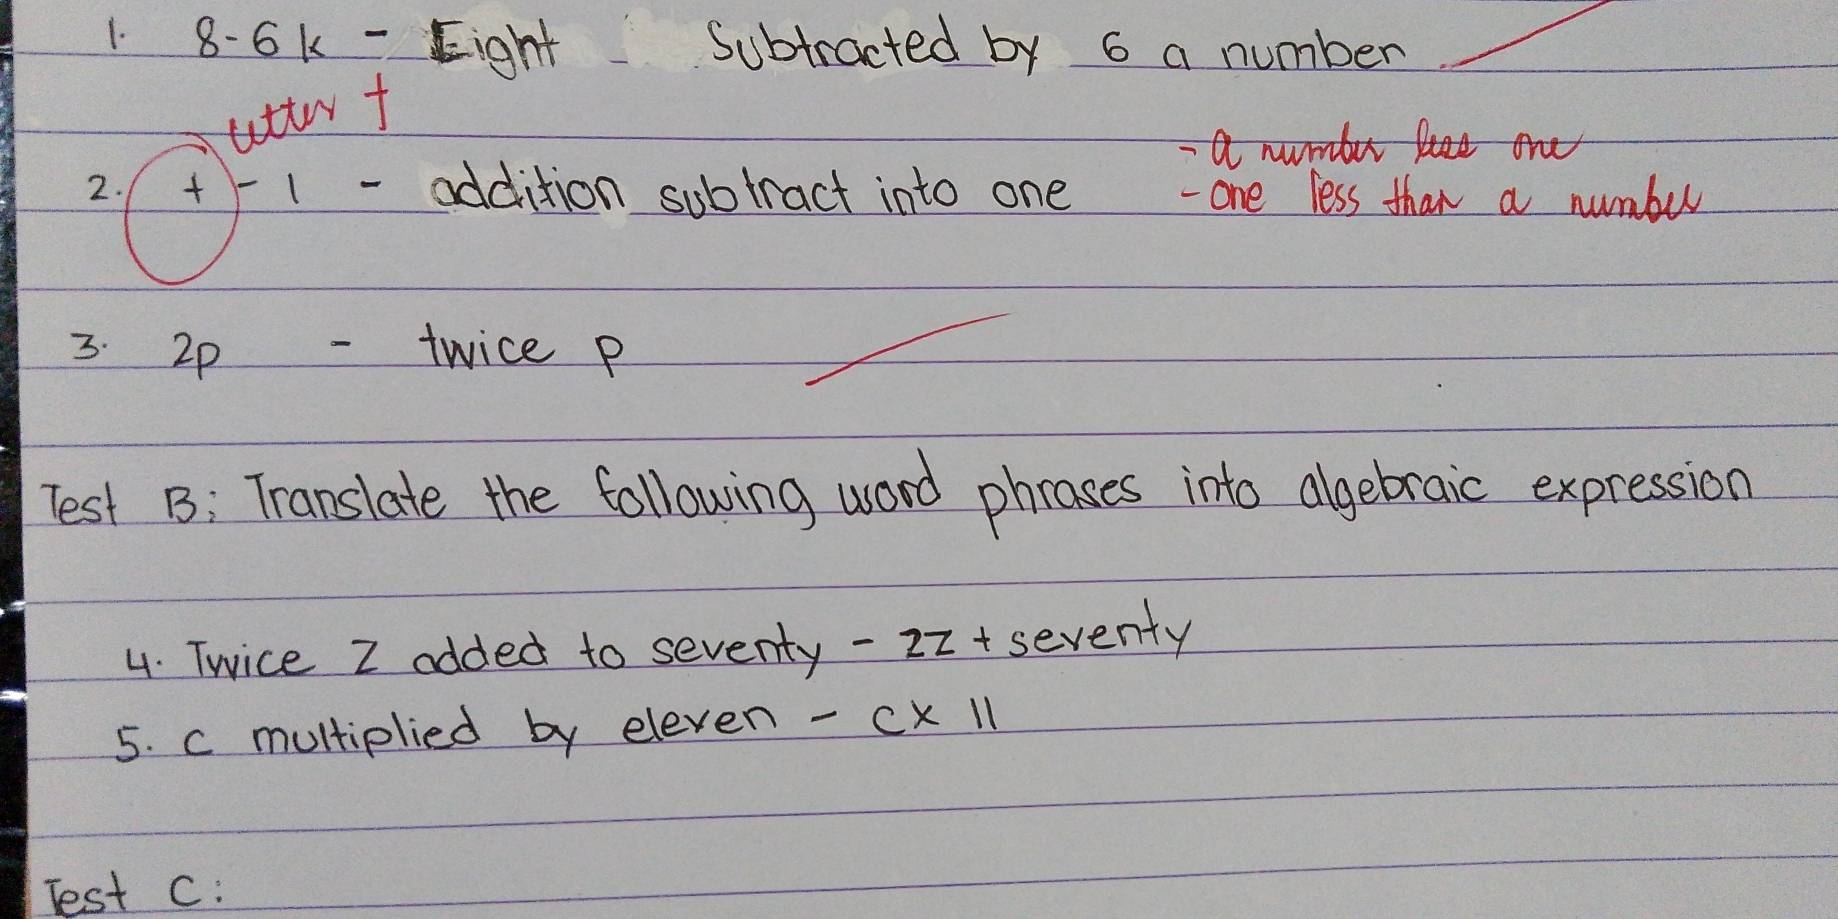 1. 8-6k - Eight Subtracted by 6 a number
letter t
- a number less one
2. t - 1 - addition subtract into one
- one less than a number
3. 2p - twice p
Test B: Translate the following word phrases into algebraic expression
4. Twice Z added to seventy - 2Z + seventy
5. C multiplied by eleven - C x 11
Test C: